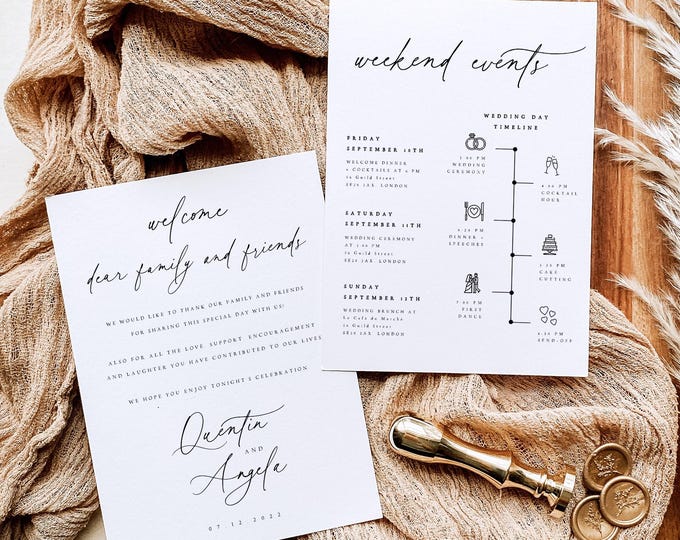 welcome
dear family and friends
WE WOULD LIKE TO THANK OUR FAMILY AND FRIENDS
FOR SHARING THIS SPECIAL DAY WITH US!
ALSO FOR ALL THE LOVE SUPPORT ENCOURAGEMENT
AND LAUGHTER YOU HAVE CONTRIBUTED TO OUR LIVES
WE HOPE YOU ENJOY TONIGHT'S CELEBRATION
Quentin
AND
Angela
07.12.2022
weekend events
FRIDAY
SEPTEMBER 10TH
WELCOME DINNER
& COCKTAILS AT 6 PM
10 Guild Street
SE28 2AX LONDON
SATURDAY
SEPTEMBER 11TH
WEDDING CEREMONY
AT 3:00 PM
10 Guild Street
SE28 2AX LONDON
SUNDAY
SEPTEMBER 12TH
WEDDING BRUNCH AT
Le Cafe de Marche
10 Guild Street
LONDON
WEDDING DAY
TIMELINE
3:00 PM
WEDDING
CEREMONY
4:00 PM
COCKTAIL
HOUR
DINNER +
SPEECHES
CAKE
CUTTING
FIRST
DANCE
SEND-OFF